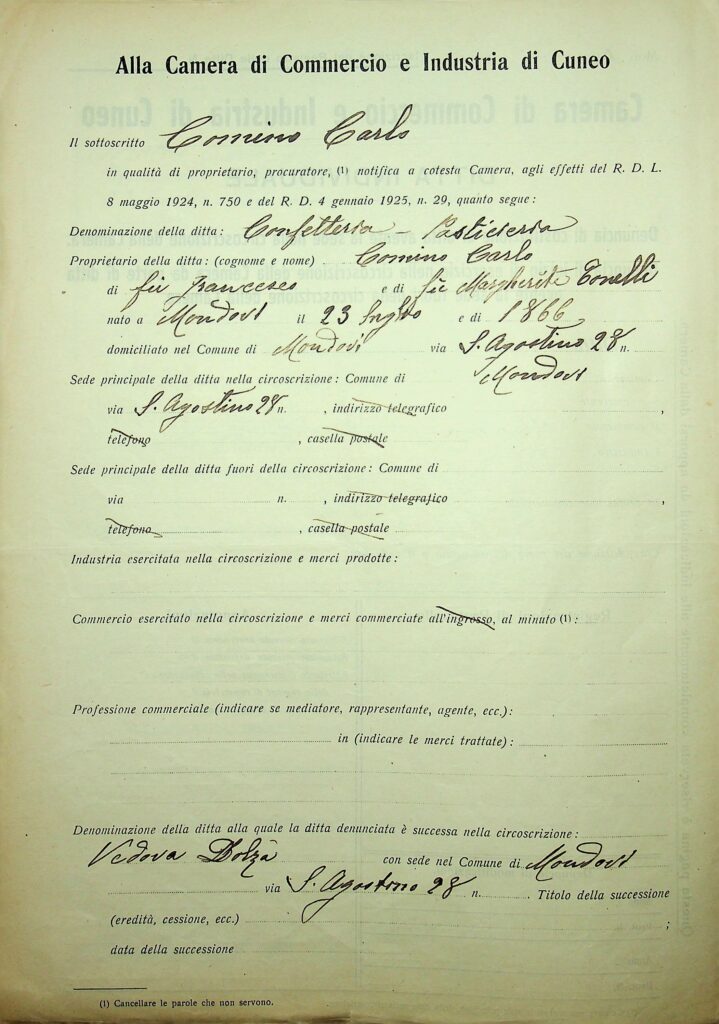 Alla Camera di Commercio e Industria di Cuneo
Il sottoscritto Comino Carlo
in qualità di proprietario, procuratore, (1) notifica a cotesta Camera, agli effetti del R. D. L.
8 maggio 1924, n. 750 e del R. D. 4 gennaio 1925, n. 29, quanto segue:
Denominazione della ditta: Confetteria - Pasticieria
Proprietario della ditta: (cognome e nome) Comino Carlo
di fu Francesco e di fu Margherita Tonelli
nato a Mondovi il 23 luglio e di 1866
domiciliato nel Comune di Mondovi via S. Agostino 28 n.
Sede principale della ditta nella circoscrizione: Comune di Mondovi
via S. Agostino 28 n. , indirizzo telegrafico ,
telefono , casella postale
Sede principale della ditta fuori della circoscrizione: Comune di
via n. , indirizzo telegrafico ,
telefono , casella postale
Industria esercitata nella circoscrizione e merci prodotte:
Commercio esercitato nella circoscrizione e merci commerciate all'ingrosso, al minuto (1):
Professione commerciale (indicare se mediatore, rappresentante, agente, ecc.):
in (indicare le merci trattate):
Denominazione della ditta alla quale la ditta denunciata è successa nella circoscrizione:
Vedova Dolza con sede nel Comune di Mondovi
via S. Agostino 28 n. Titolo della successione
(eredità, cessione, ecc.) ;
data della successione
(1) Cancellare le parole che non servono.